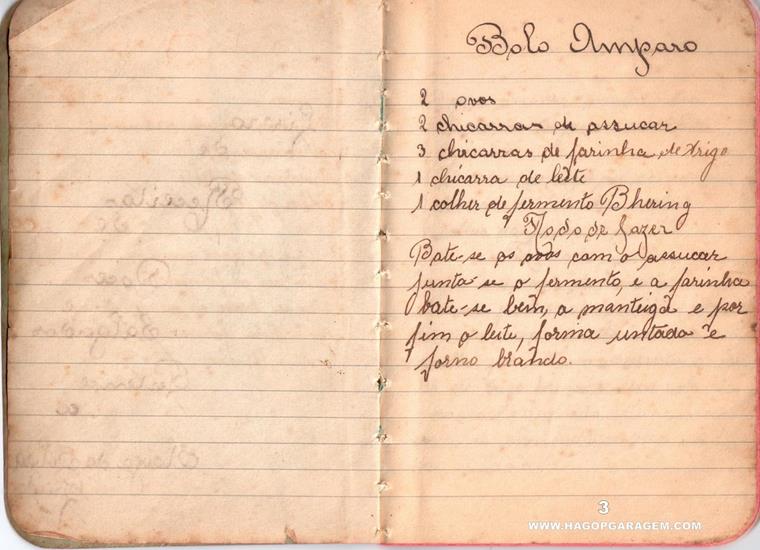 Bolo Amparo
2 ovos
2 chicarras de assucar
3 chicarras de farinha de trigo
1 chicarra de leite
1 colher de fermento Bhering
Modo de fazer
Bate-se os ovos com o assucar
junta-se o fermento, e a farinha
bate-se bem, a manteiga e por
fim o leite, forma untada e
forno brando.
3
WWW.HAGOPGARAGEM.COM